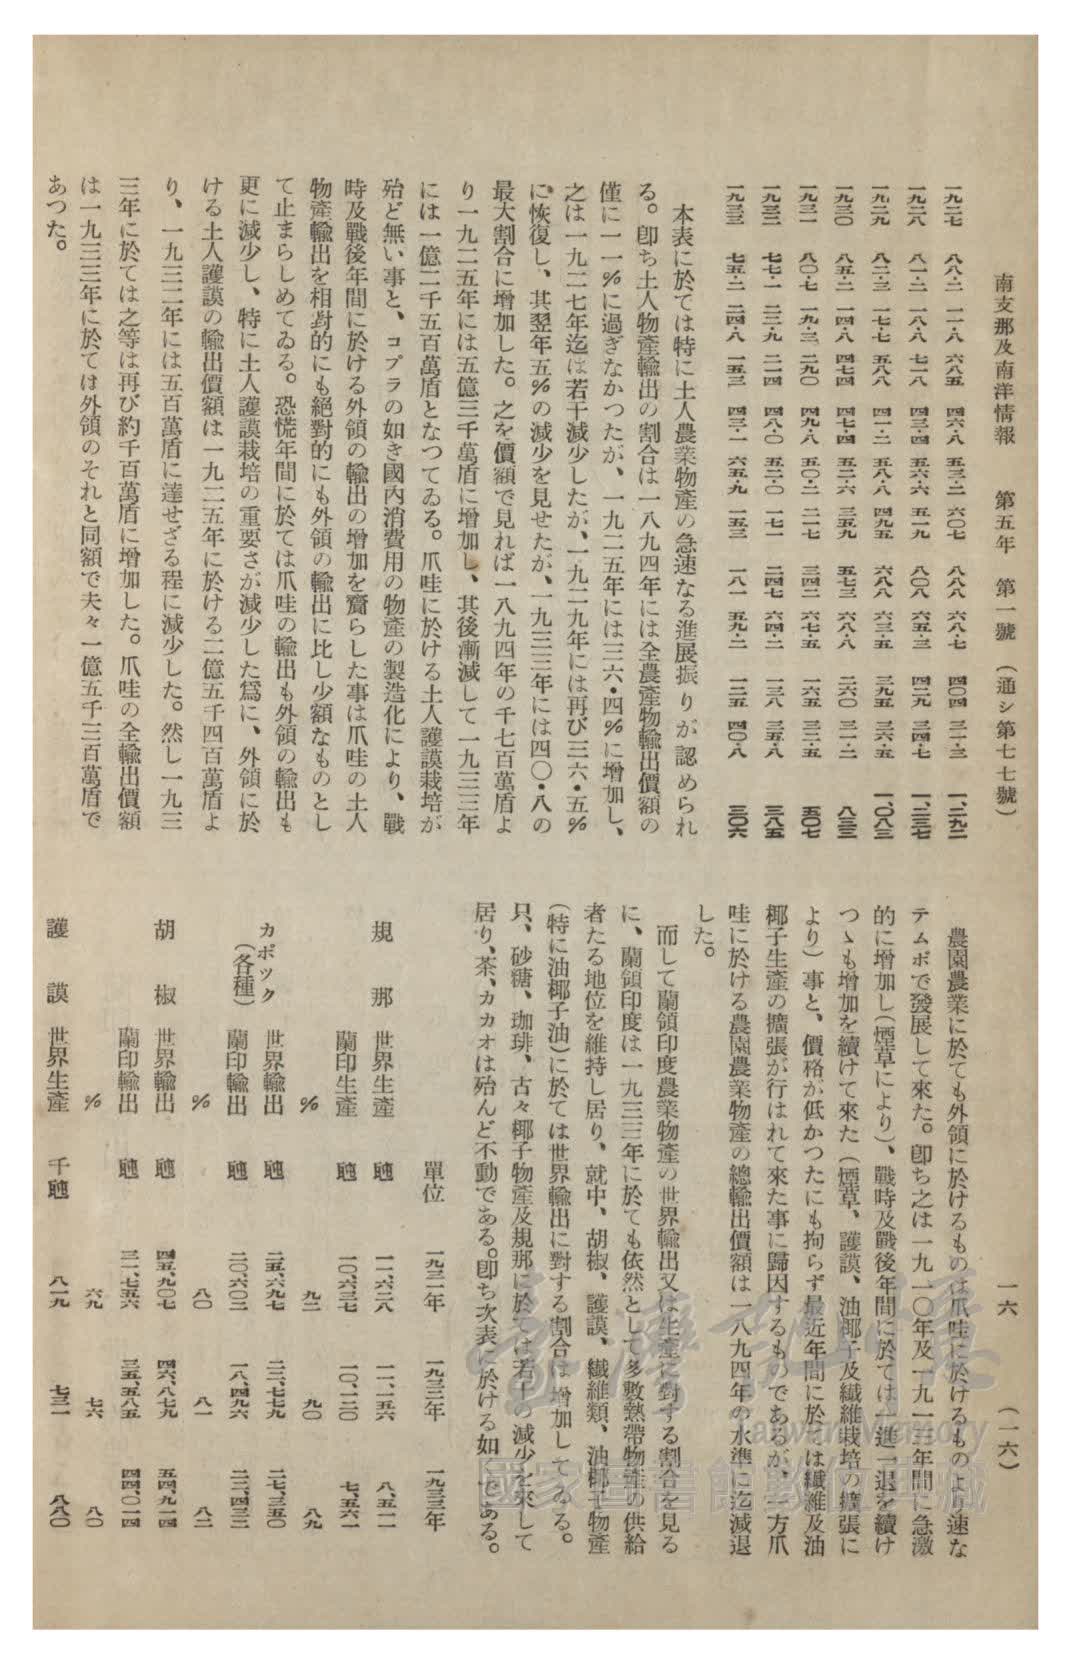 南支那及南洋情報　第五年　第一號　(通シ第七七號)　一六　(一六)
一九二七　八八・二　一一・八　六八五　四六・八　五三・二　六〇七　八八八　六八・七　四〇四　三一・三　一、二九二
一九二八　八一・二　一八・八　七一八　四三・四　五六・六　五一九　八〇八　六五・三　四二九　三四・七　一、二三七
一九二九　八二・三　一七・七　五八八　四一・二　五八・八　四九五　六八八　六三・五　三九五　三六・五　一、〇八三
一九三〇　八五・二　一四・八　四七四　四七・四　五二・六　三五九　五七三　六八・八　二六〇　三一・二　八三三
一九三一　八〇・七　一九・三　二九〇　四九・八　五〇・二　二一七　三四二　六七・五　一六五　三二・五　五〇七
一九三二　七七・一　二二・九　二一四　四八・〇　五二・〇　一七一　二四七　六四・二　一三八　三五・八　三八五
一九三三　七五・二　二四・八　一五三　四三・一　六五・九　一五三　一八一　五九・二　一二五　四〇・八　三〇六
本表に於ては特に土人農業物產の急速なる進展振りが認められ
る。卽ち土人物產輸出の割合は一八九四年には全農產物輸出價額の
僅に一一％に過ぎなかつたが、一九二五年には三六・四％に增加し、
之は一九二七年迄は若干減少したが、一九二九年には再び三六・五％
に恢復し、其翌年五％の減少を見せたが、一九三三年には四〇・八の
最大割合に增加した。之を價額で見れば一八九四年の千七百萬盾よ
り一九二五年には五億三千萬盾に增加し、其後漸減して一九三三年
には一億二千五百萬盾となつてゐる。爪哇に於ける土人護謨栽培が
殆ど無い事と、コプラの如き國內消費用の物產の製造化により、戰
時及戰後年間に於ける外領の輸出の增加を齎らした事は爪哇の土人
物產輸出を相對的にも絕對的にも外領の輸出に比し少額なものとし
て止まらしめてゐる。恐慌年間に於ては爪哇の輸出も外領の輸出も
更に減少し、特に土人護謨栽培の重要さが減少した爲に、外領に於
ける土人護謨の輸出價額は一九二五年に於ける二億五千四百萬盾よ
り、一九三二年には五百萬盾に達せざる程に減少した。然し一九三
三年に於ては之等は再び約千百萬盾に增加した。爪哇の全輸出價額
は一九三三年に於ては外領のそれと同額で夫々一億五千三百萬盾で
あつた。
農園農業に於ても外領に於けるものは爪哇に於けるものより速な
テムポで發展して來た。卽ち之は一九一〇年及一九一三年間に急激
的に增加し(煙草により)、戰時及戰後年間に於ては一進一退を續け
つゝも增加を續けて來た(煙草、護謨、油椰子及纖維栽培の擴張に
より)事と、價格が低かつたにも拘らず最近年間に於ては纖維及油
椰子生產の擴張が行はれて來た事に歸因するものであるが、一方爪
哇に於ける農園農業物產の總輸出價額は一八九四年の水準に迄減退
した。
而して蘭領印度農業物產の世界輸出又は生產に對する割合を見る
に、蘭領印度は一九三三年に於ても依然として多數熱帶物產の供給
者たる地位を維持し居り、就中、胡椒、護謨、纖維類、油椰子物產
(特に油椰子油)に於ては世界輸出に對する割合は增加してゐる。
只、砂糖、珈琲、古々椰子物產及規那に於ては若干の減少を來して
居り、茶、カカオは殆んど不動である。卽ち次表に於ける如くである。
單位　一九三一年　一九三二年　一九三三年
規那　世界生產　瓲　一一、六二八　一一、一五六　八、五一一
蘭印生產　瓲　一〇、六三七　一〇、一二〇　七、五六一
％　九二　九〇　八九
カポツク(各種)　世界輸出　瓲　二五、六九七　二二、七七九　二七、三五〇
蘭印輸出　瓲　二〇、六〇二　一八、四九六　二二、四三二
％　八〇　八一　八二
胡椒　世界輸出　瓲　四五、九〇七　四六、八七九　五四、九一四
蘭印輸出　瓲　三一、七五六　三五、五八五　四四、〇一四
％　六九　七六　八〇
護謨　世界生產　千瓲　八一九　七三一　八八〇
臺灣記憶
Taiwan Memory
國家圖書館數位典藏